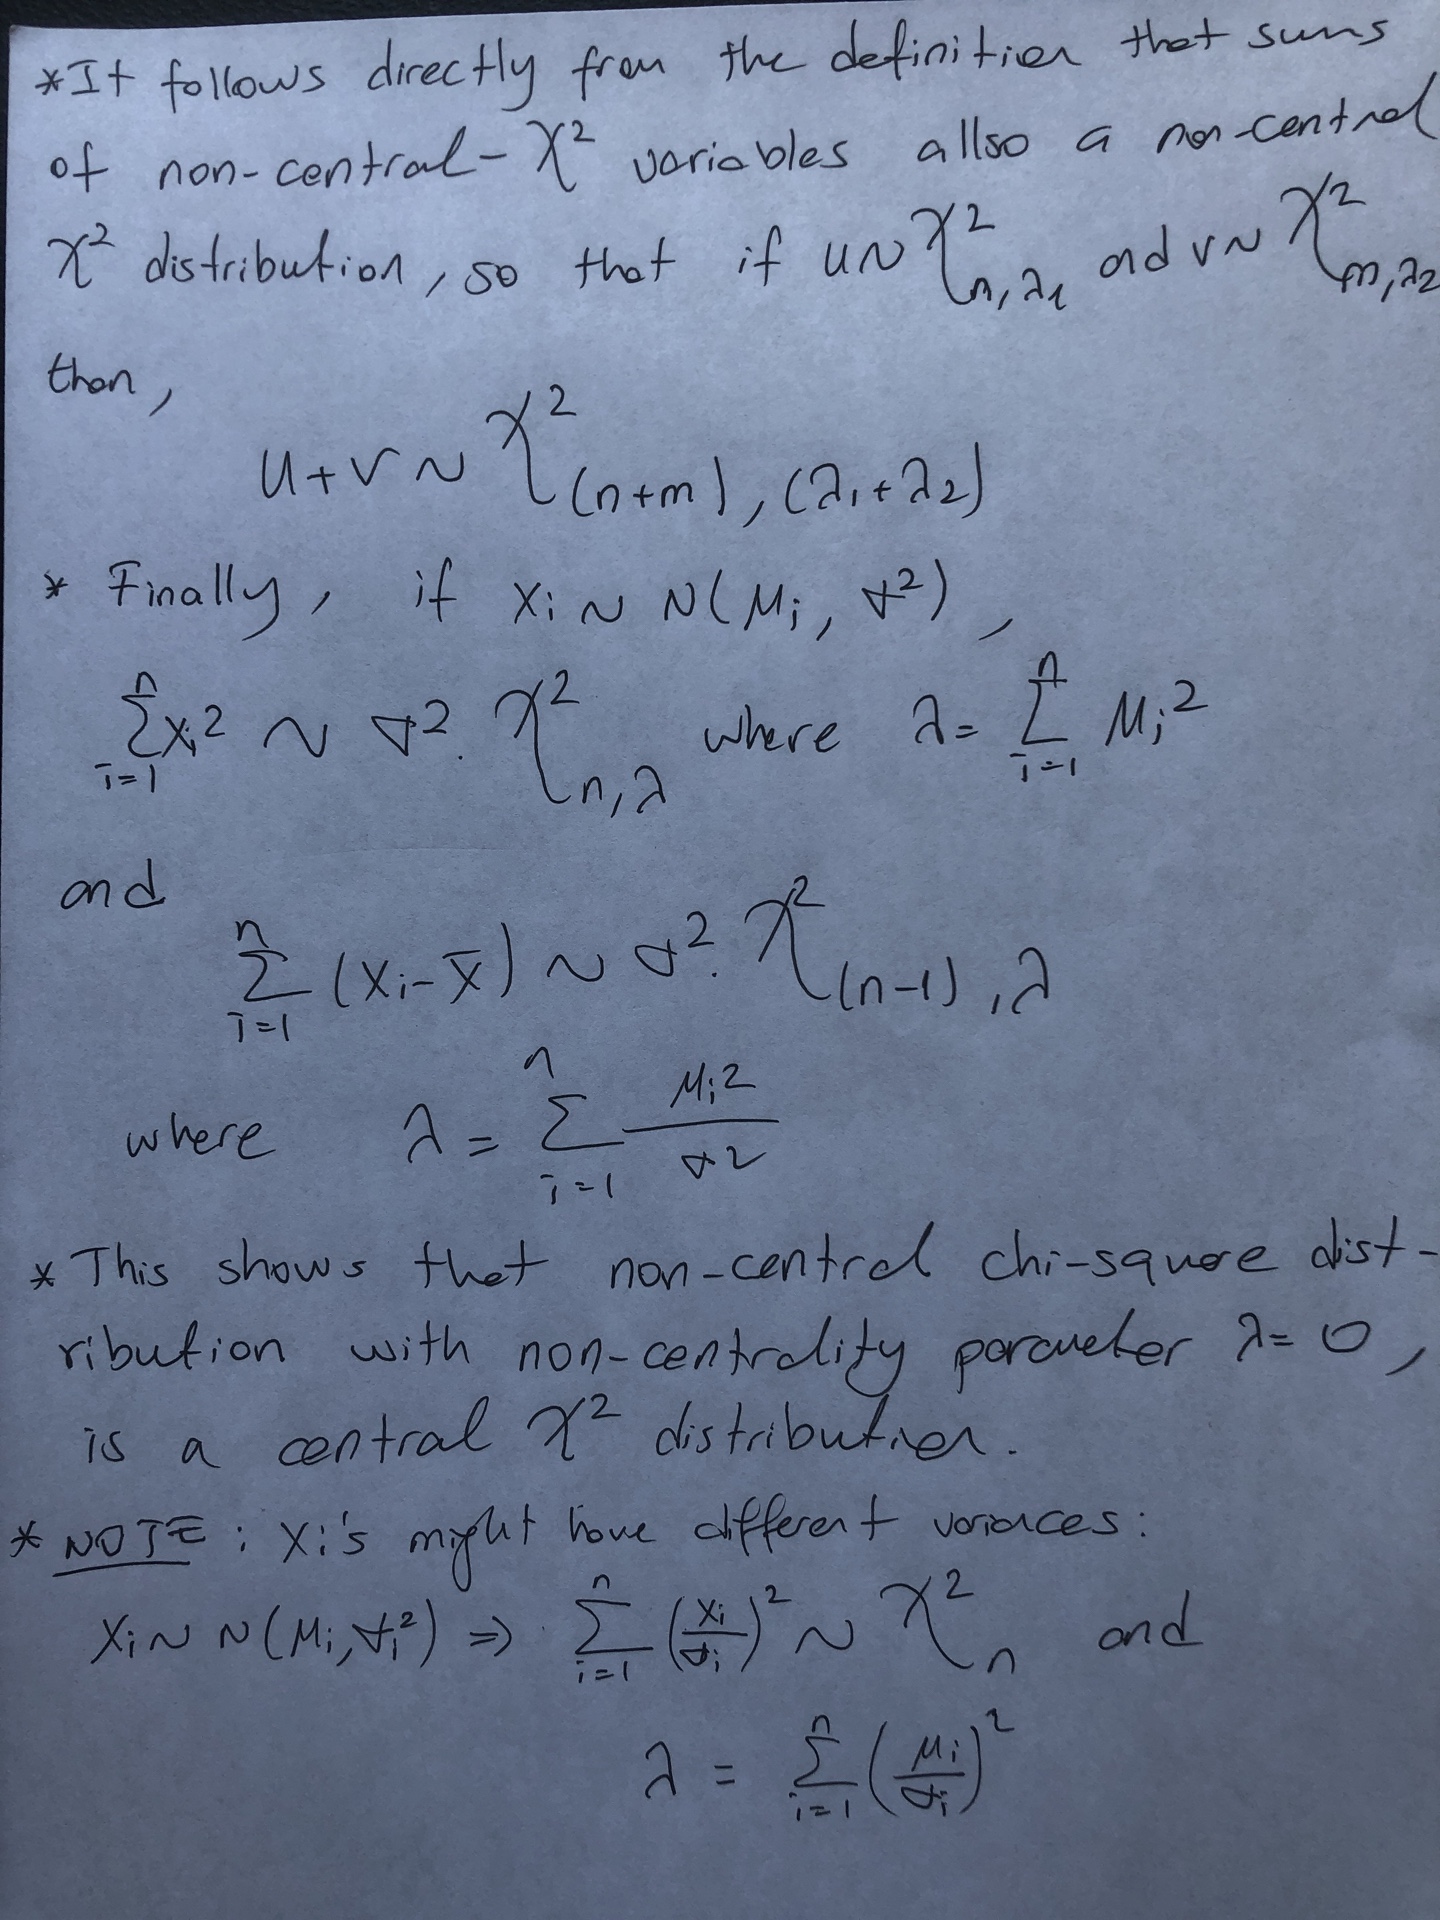 *It follows directly from the definition that sums
of non-central-χ² variables allso a non-central
χ² distribution, so that if u~χ²n,λ1 and v~χ²m,λ2
then,
u+v~χ²(n+m),(λ1+λ2)
* Finally, if xi ~ N(μi, σ²),
∑i=1^n xi² ~ σ².χ²n,λ where λ= ∑i=1^n μi²
and
∑i=1^n (xi-x̄) ~ σ².χ²(n-1),λ
where λ = ∑i=1^n μi²/σ²
* This shows that non-central chi-square dist-
ribution with non-centrality parameter λ=0,
is a central χ² distribution.
* NOTE: xi's might have different variances:
xi~N(μi,σi²) ⇒ ∑i=1^n (xi/σi)² ~ χ²n and
λ = ∑i=1^n (μi/σi)²